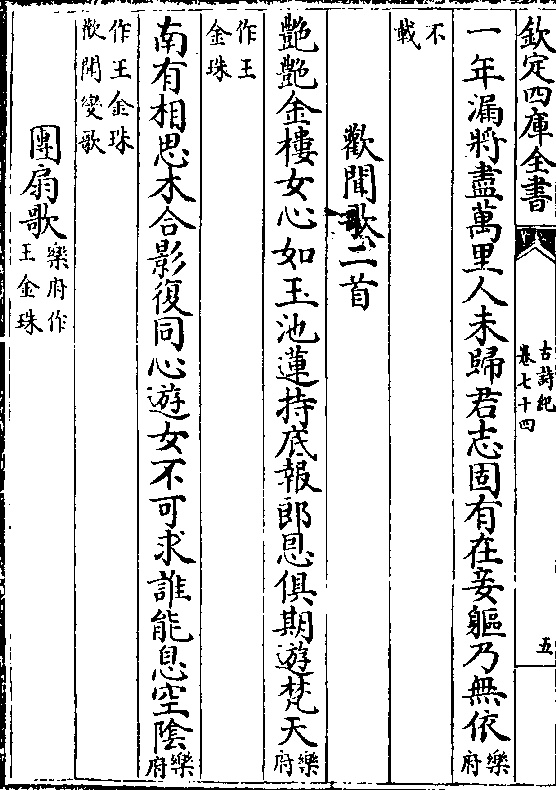 欽定四庫全書
古詩紀
卷七十四
五
一年漏將盡萬里人未歸君志固有在妾軀乃無依樂府
不載
歡聞歌二首
艷艷金樓女心如王池蓮持底報郎恩俱期遊梵天樂府
作王金珠
南有相思木合影復同心遊女不可求誰能息空陰樂府
作王金珠歡聞變歌
團扇歌樂府作王金珠